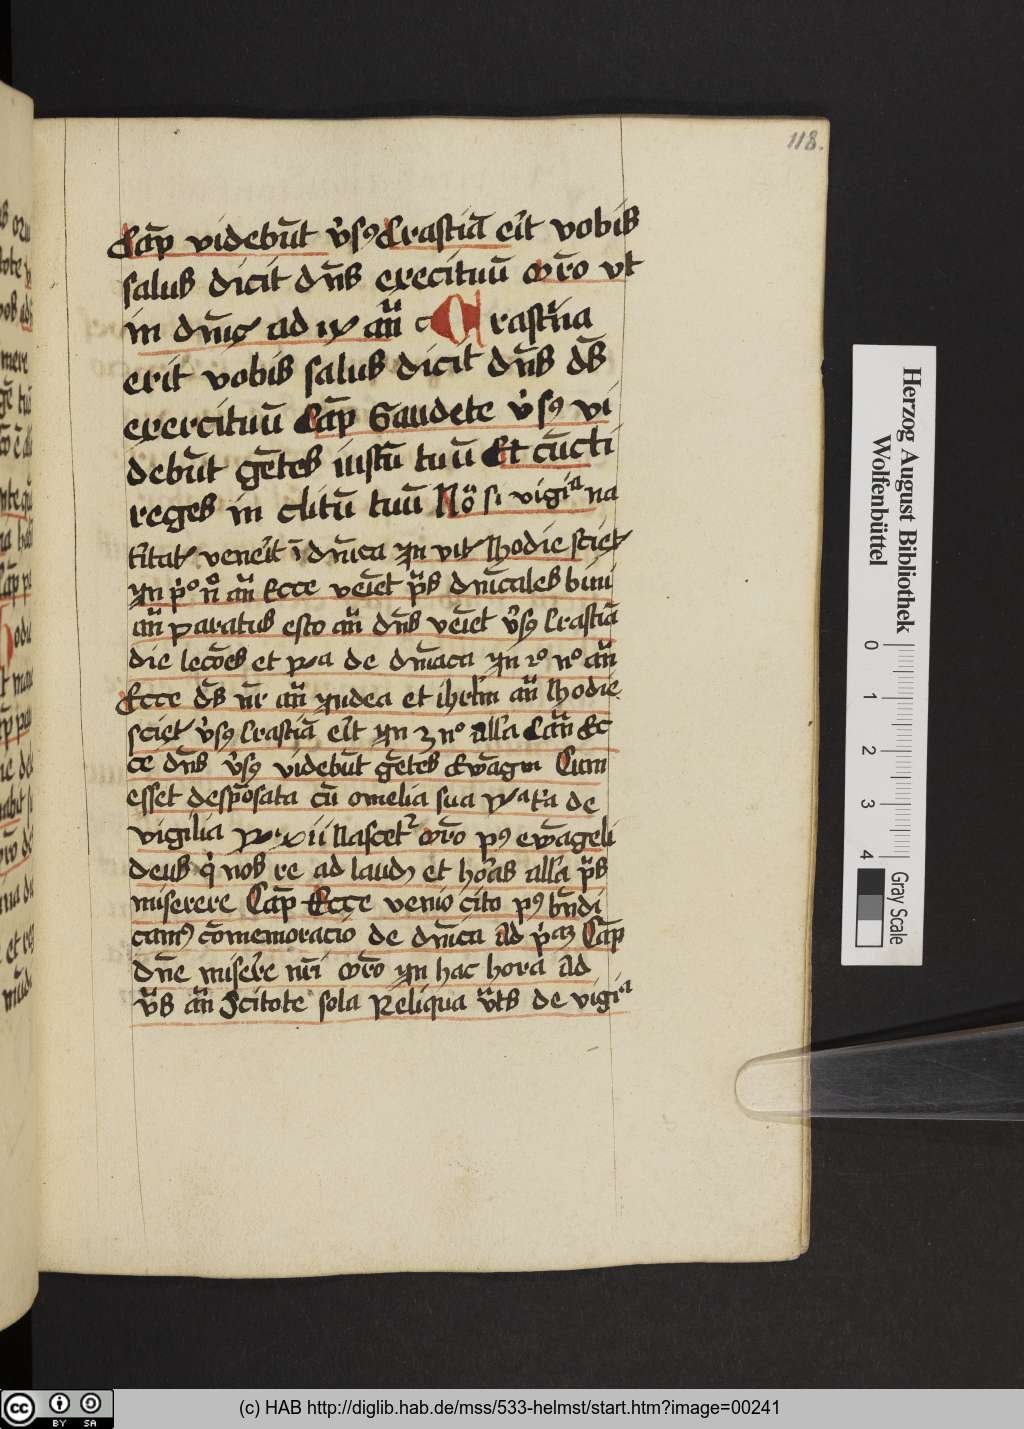 118.
Cap̄ videbūt v̉sꝯ Crastiā eit vobis
salus dicit dn̄s exercituū or̄o vt
in dn̄ic ad ix an̄ c Crastīa
erit vobis salus dicit dn̄s ds̄
exercituū Cap̄ Gaudete v̉sꝯ vi
debūt gētes iustū tuū Et cūcti
reges in clitū tuū No si vigiᵃ na
titat veneit ī dn̄ica yn vit Hodie sciet
yn pᵒ nᵒ an̄ Ecce veiet ps̄ dn̄icales bini
an̄ paratus esto an̄ dn̄s veiet v̉sꝯ Crastiā
die lecōes et pa de dn̄ica yn 2ᵒ nᵒ an̄
Ecce ds̄ nr̄ an̄ yudea et ihrlm̄ an̄ Hodie
sciet v̉sꝯ Crastiā eit yn 3 nᵒ alla Can̄ Ec
ce dn̄s v̉sꝯ videbūt gētes ewāgm Cum
esset despōsata cū omelia sua de
vigilia xii Nascet or̄o pꝯ ewāgeli
deus q̇ nos re ad laud et horas alla ps̄
miserere Cap̄ Ecce venio cito pꝯ bn̄di
camꝯ cōmemoracio de dn̄ica Ad pᵃᵐ Cap̄
dn̄e miserē nr̄i or̄o yn hac hora Ad
vs̄ an̄ Scitote sola Reliqua vts de vigiᵃ
Herzog August Bibliothek
Wolfenbüttel
0 1 2 3 4
Gray Scale
cc BY SA
(c) HAB http://diglib.hab.de/mss/533-helmst/start.htm?image=00241